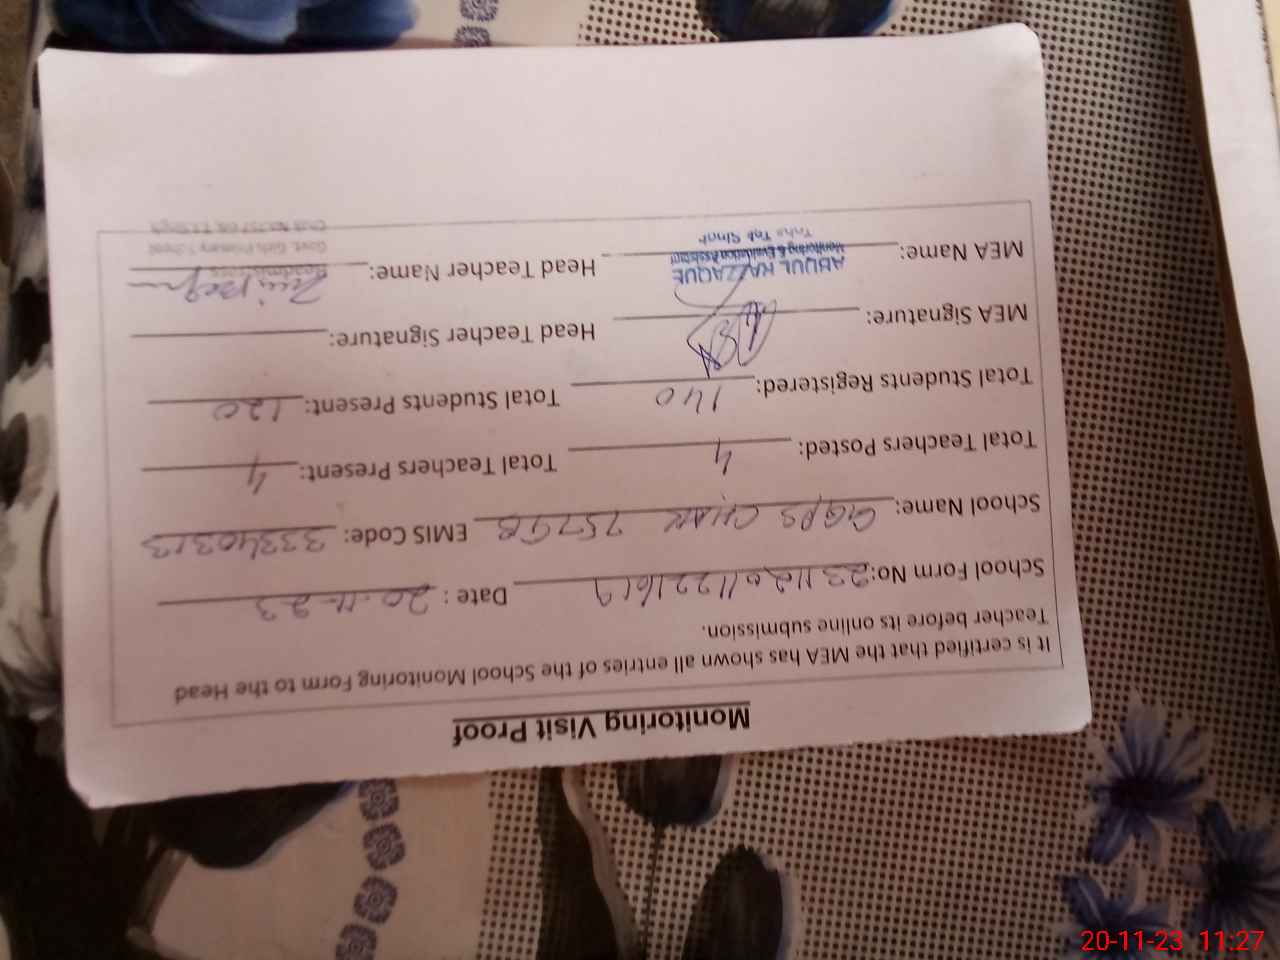 Monitoring Visit Proof
It is certified that the MEA has shown all entries of the School Monitoring Form to the Head
Teacher before its online submission.
School Form No: 23112011221619 Date : 20-11-23
School Name: GGPS CHAK 757GB EMIS Code: 33340313
Total Teachers Posted: 4 Total Teachers Present: 4
Total Students Registered: 140 Total Students Present: 120
MEA Signature: Head Teacher Signature:
MEA Name: ABDUL RAZZAQUE Head Teacher Name:
Monitoring & Evaluation Assistant Headmistress
Govt. Girls Primary School
20-11-23 11:27